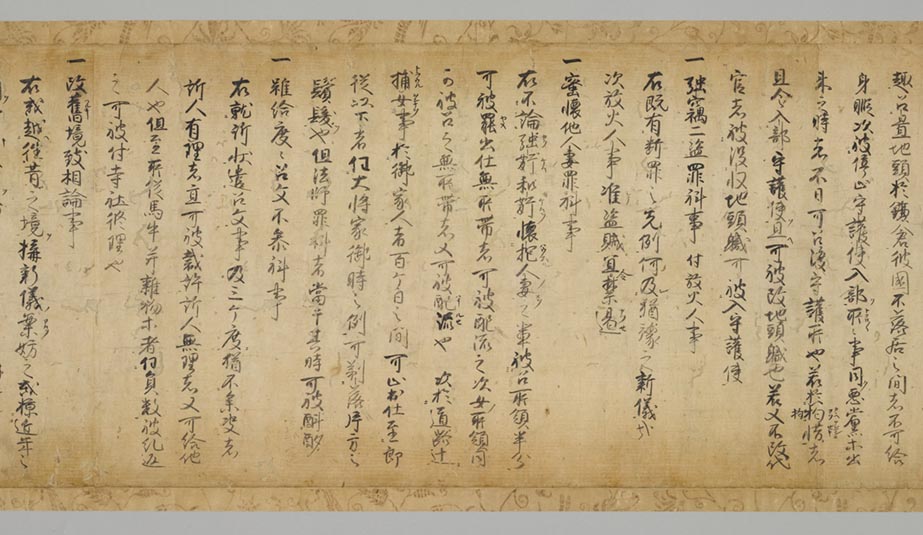 趣召置地頭於鎌倉彼國不落居之間者不可給
身暇次被停止守護使入部所々事同悪黨等出
来之時者不日可召渡守護所也若於拘惜者
且令入部守護使且可被改地頭職也若又不改代
官者被没収地頭職可被入守護使
一強竊二盗罪科事 付放火人事
右既有断罪之先例何及猶豫之新儀哉
次放火人事准盗賊宜禁遏
一密懐他人妻罪科事
右不論強姧和姧懐抱人妻之輩被召所領半分
可被罷出仕無所帯者可被配流之次女所領同
可被召之無所帯者又可被配流也 次於道路辻
捕女事於御家人者百ケ日之間可止出仕至郎
従以下者任大将家御時之例可剃落片方之
鬢髮也但法師罪科者當于其時可被斟酌
一雖給度々召文不参科事
右就訴状遣召文事及三ケ度猶不参決者
訴人有理者直可被裁許訴人無理者又可給他
人也但至所従馬牛并雜物等者任員数被糺返
之可被付寺社修理也
一改舊境致相論事
右或越往昔之境搆新儀案妨之或掠近年之